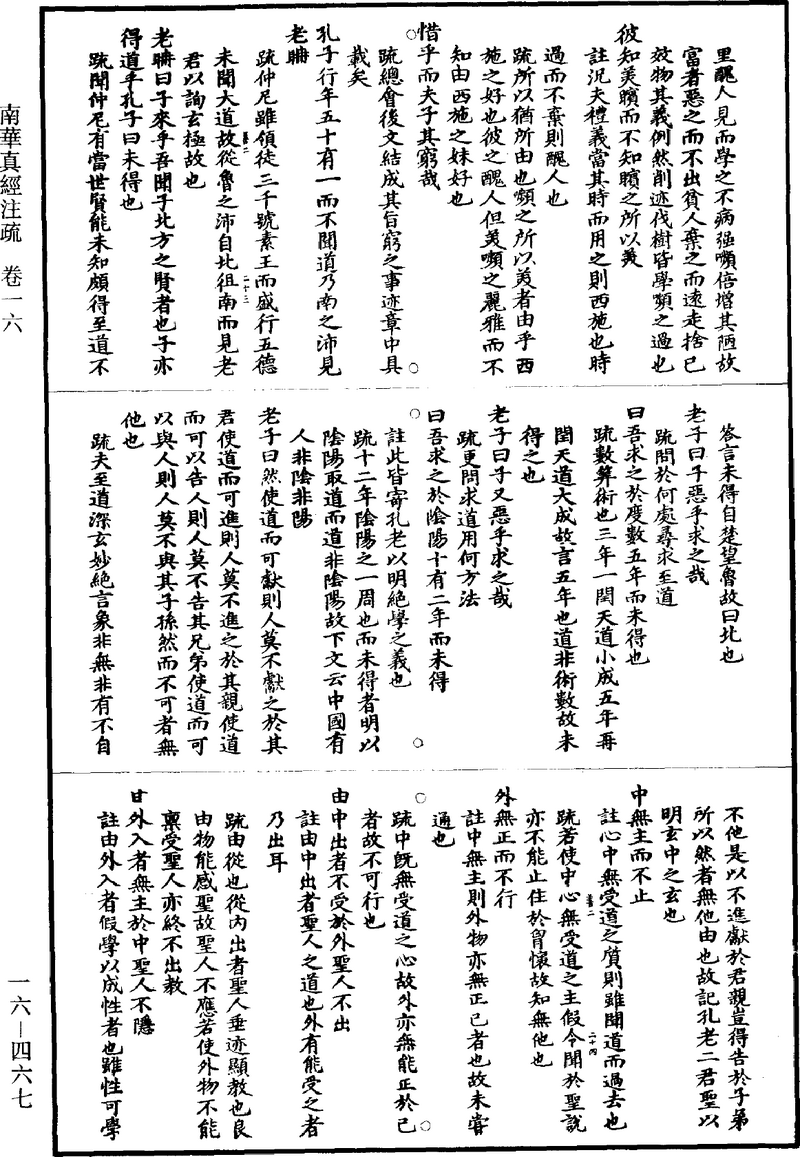 南華真經注疏　卷一六
里醜人見而學之不病强嚬倍增其陋故
富者惡之而不出貧人棄之而遠走捨己
效物其義例然削迹伐樹皆學嚬之過也
彼知美矉而不知矉之所以美
註況夫禮義當其時而用之則西施也時
過而不棄則醜人也
疏所以猶所由也嚬之所以美者由乎西
施之好也彼之醜人但美嚬之麗雅而不
知由西施之姝好也
惜乎而夫子其窮哉
疏總會後文結成其旨窮之事迹章中具
載矣
孔子行年五十有一而不聞道乃南之沛見
老聃
疏仲尼雖領徒三千號素王而盛行五德
未聞大道故從魯之沛自北徂南而見老
君以詢玄極故也
老聃曰子來乎吾聞子北方之賢者也子亦
得道乎孔子曰未得也
疏聞仲尼有當世賢能未知頗得至道不
答言未得自楚望魯故曰北也
老子曰子惡乎求之哉
疏問於何處尋求至道
曰吾求之於度數五年而未得也
疏數算術也三年一閏天道小成五年再
閏天道大成故言五年也道非術數故未
得之也
老子曰子又惡乎求之哉
疏更問求道用何方法
曰吾求之於陰陽十有二年而未得
註此皆寄孔老以明絕學之義也
疏十二年陰陽之一周也而未得者明以
陰陽取道而道非陰陽故下文云中國有
人非陰非陽
老子曰然使道而可獻則人莫不獻之於其
君使道而可進則人莫不進之於其親使道
而可以告人則人莫不告其兄弟使道而可
以與人則人莫不與其子孫然而不可者無
他也
疏夫至道深玄妙絕言象非無非有不自
不他是以不進獻於君親豈得告於子弟
所以然者無他由也故記孔老二君聖以
明玄中之玄也
中無主而不止
註心中無受道之質則雖聞道而過去也
疏若使中心無受道之主假令聞於聖說
亦不能止住於胷懷故知無他也
外無正而不行
註中無主則外物亦無正己者也故未嘗
通也
疏中既無受道之心故外亦無能正於己
者故不可行也
由中出者不受於外聖人不出
註由中出者聖人之道也外有能受之者
乃出耳
疏由從也從內出者聖人垂迹顯教也良
由物能感聖故聖人不應若使外物不能
稟受聖人亦終不出教
由外入者無主於中聖人不隱
註由外入者假學以成性者也雖性可學
一六—四六七